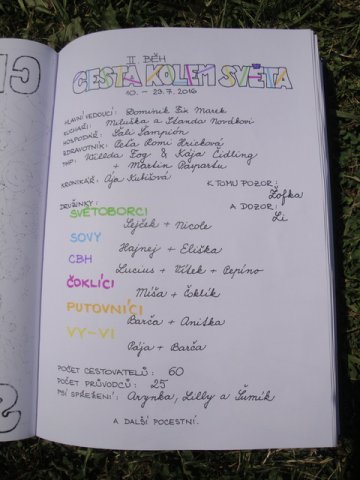 II. BĚH
CESTA KOLEM SVĚTA
10. – 23.7.2016
HLAVNÍ VEDOUCÍ: Dominik Fix Marek
KUCHAŘI: Miluška a Standa Novákovi
HOSPODÁŘ: Sali Lampión
ZDRAVOTNÍK: Peťa Romi Hricková
THP: Willda Fog & Kája Čudling
+ Martin Paspartu
KRONIKÁŘ: Ája Kubišová
K TOMU POZOR: Žofka
A DOZOR: Li
DRUŽINKY:
SVĚTOBORCI
Sejček + Nicole
SOVY
Hajnej + Eliška
CBH
Lucius + Vítek + Pepíno
ČOKLÍCI
Míša + Čoklík
PUTOVNÍCI
Barča + Anitka
VY-VI
Pája + Barča
POČET CESTOVATELŮ: 60
POČET PRŮVODCŮ: 25
PSÍ SPŘEŽENÍ: Arynka, Lilly a Šumík
A DALŠÍ POCESTNÍ.